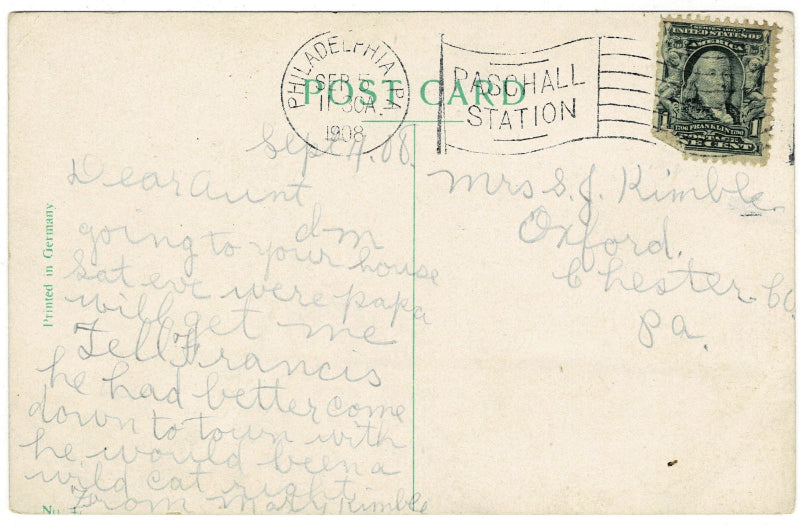 POST CARD
PHILADELPHIA, PA.
SEP 5
11 30A.
1908
PASCHALL
STATION
SERIES 1902
UNITED STATES OF
AMERICA
1706 FRANKLIN 1790
1 1
POSTAGE
ONE CENT
Sept 4. 08.
Dear Aunt
going to your house
Sat eve were papa
will get me
Tell Francis
he had better come
down to town with
he would been a
wild cat right
From Mary Kimble
Mrs S. J. Kimble
Oxford.
Chester. Co.
Pa.
Printed in Germany
No.